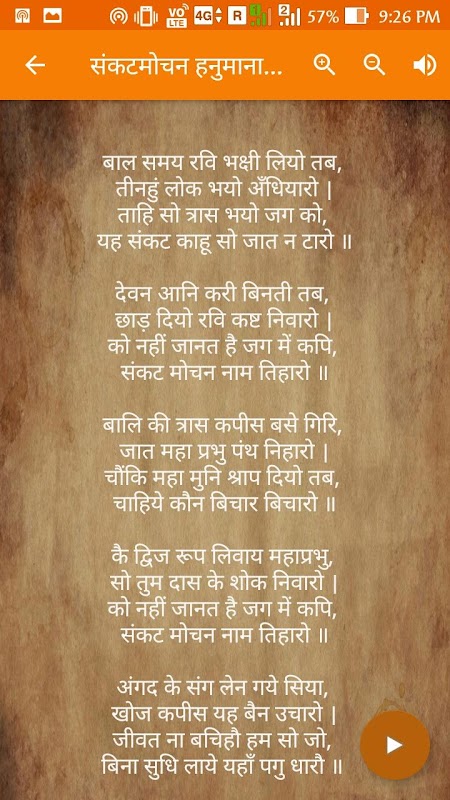 VO LTE 4G R 2 57% 9:26 PM
संकटमोचन हनुमाना...
बाल समय रवि भक्षी लियो तब,
तीनहुं लोक भयो अँधियारो |
ताहि सो त्रास भयो जग को,
यह संकट काहू सो जात न टारो ॥
देवन आनि करी बिनती तब,
छाड़ दियो रवि कष्ट निवारो |
को नहीं जानत है जग में कपि,
संकट मोचन नाम तिहारो ॥
बालि की त्रास कपीस बसे गिरि,
जात महा प्रभु पंथ निहारो |
चौंकि महा मुनि श्राप दियो तब,
चाहिये कौन बिचार बिचारो ॥
कै द्विज रूप लिवाय महाप्रभु,
सो तुम दास के शोक निवारो |
को नहीं जानत है जग में कपि,
संकट मोचन नाम तिहारो ॥
अंगद के संग लेन गये सिया,
खोज कपीस यह बैन उचारो |
जीवत ना बचिहौ हम सो जो,
बिना सुधि लाये यहाँ पगु धारौ ॥